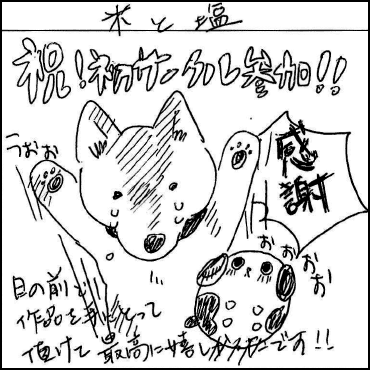 米と塩
祝！初サークル参加！！
うおお
感謝
おおおお
目の前で
作品を手にとって
頂けて最高に嬉しかったです！！